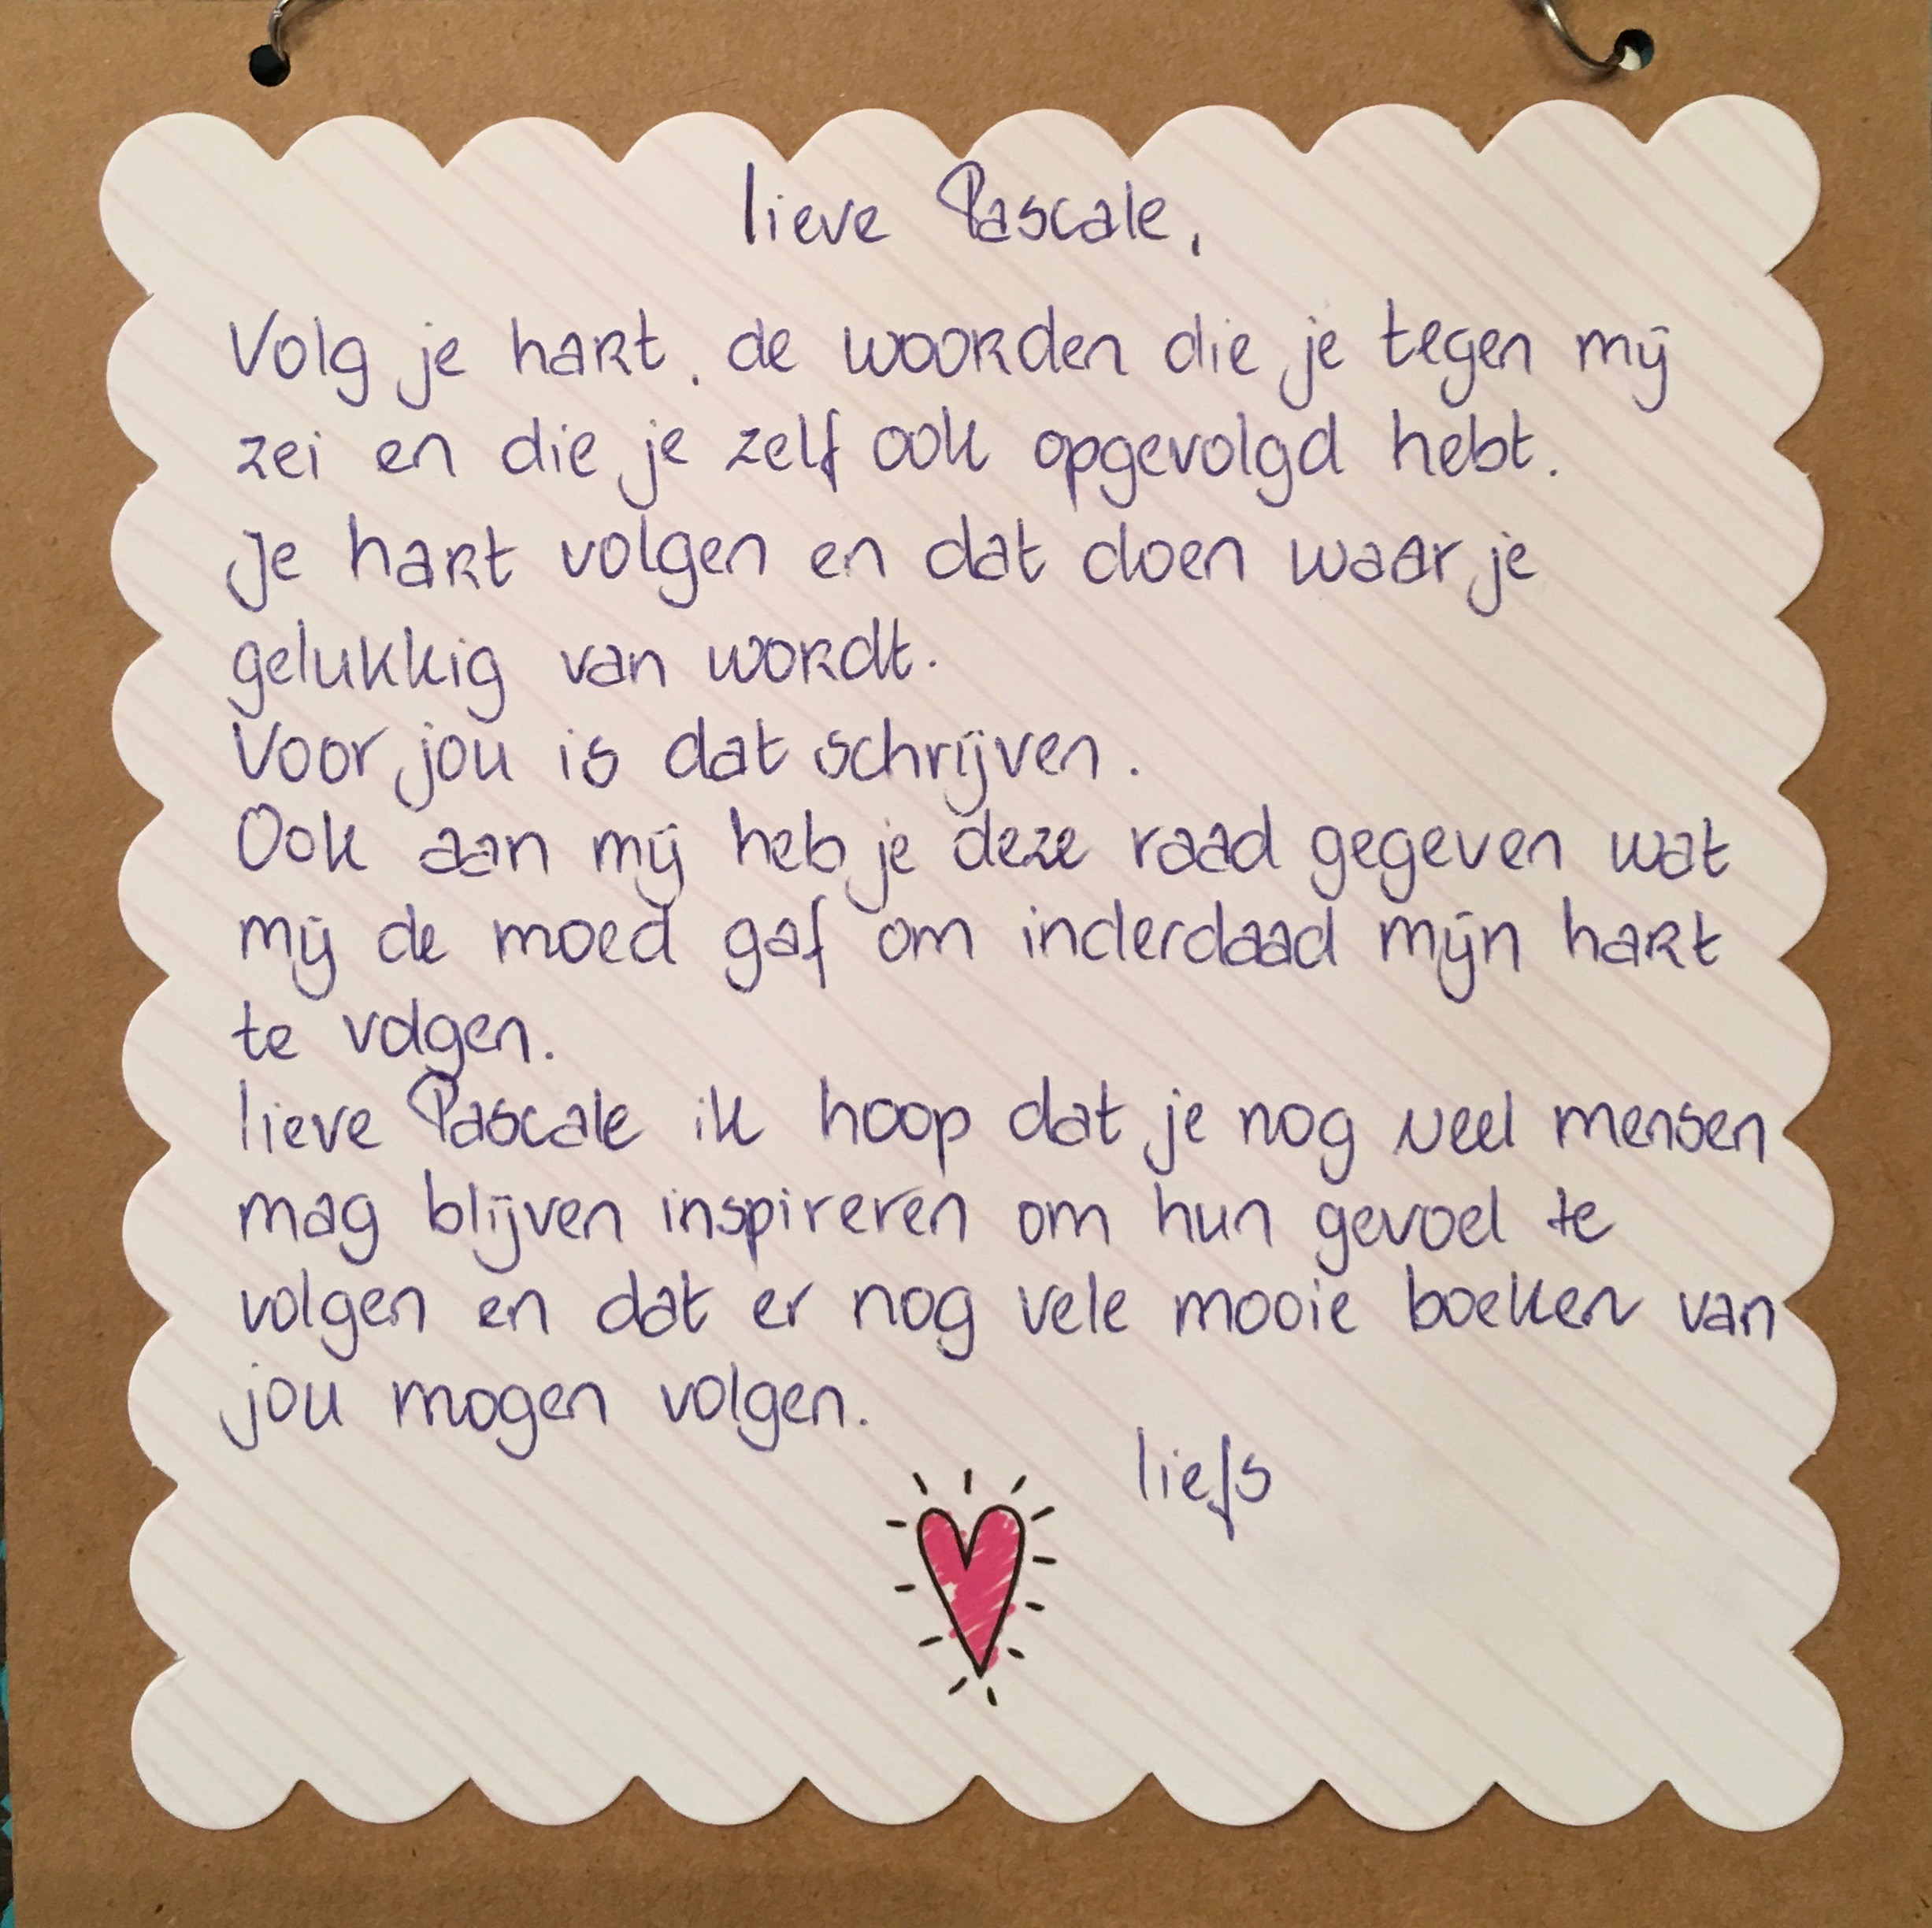 lieve Pascale,
Volg je hart. de woorden die je tegen mij
zei en die je zelf ook opgevolgd hebt.
Je hart volgen en dat doen waar je
gelukkig van wordt.
Voor jou is dat schrijven.
Ook aan mij heb je deze raad gegeven wat
mij de moed gaf om inderdaad mijn hart
te volgen.
lieve Pascale ik hoop dat je nog veel mensen
mag blijven inspireren om hun gevoel te
volgen en dat er nog vele mooie boeken van
jou mogen volgen.
liefs